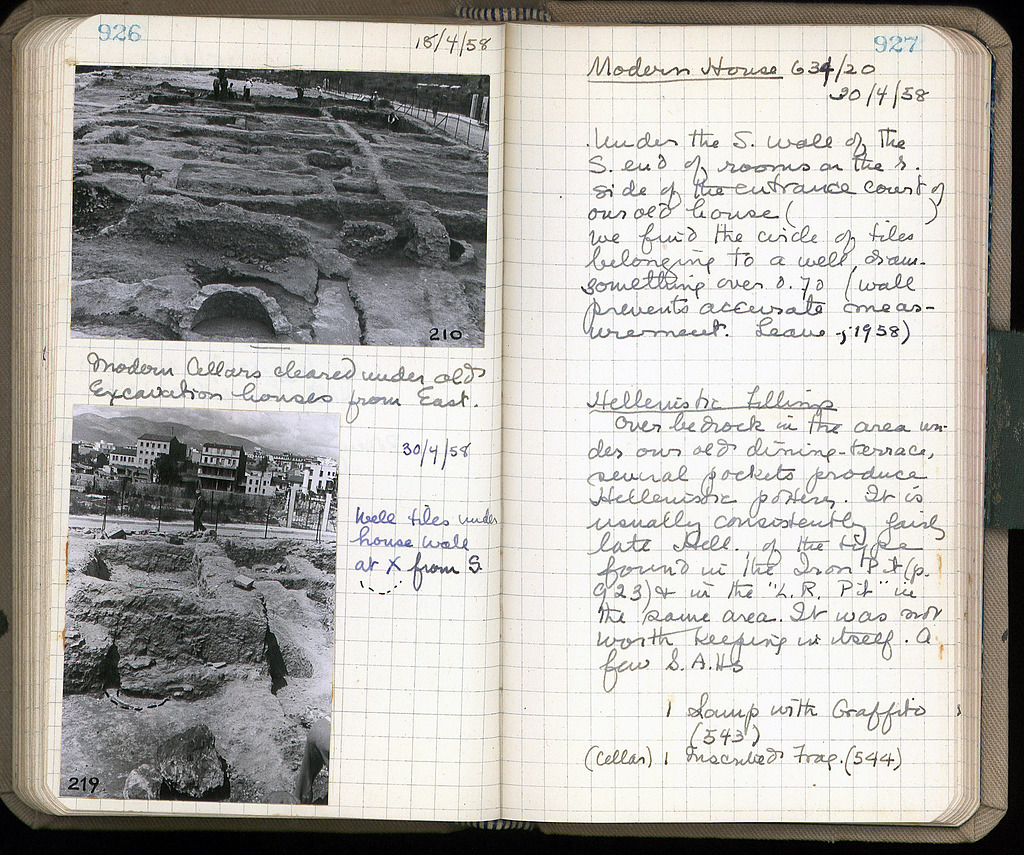 926
18/4/58
210
Modern Cellars cleared under old
Excavation houses from East.
30/4/58
Well tiles under
house wall
at X from S.
219
927
Modern House 634/20
30/4/58
Under the S. wall of the
S. end of rooms on the
side of the entrance court of
our old house (          )
we find the circle of tiles
belonging to a well, diam.
something over 0.70 (wall
prevents accurate meas-
urement. Leave 1958)
Hellenistic Filling
Over bedrock in the area un-
der our old dining-terrace,
several pockets produce
Hellenistic pottery. It is
usually consistently fairly
late Hell. of the type
found in the Iron Pit (p.
923) & in the "L.R. Pit" in
the same area. It was not
worth keeping in itself. A
few S.A.Hs
1 Lamp with Graffito
(543)
(Cellar) 1 Inscribed Frag. (544)